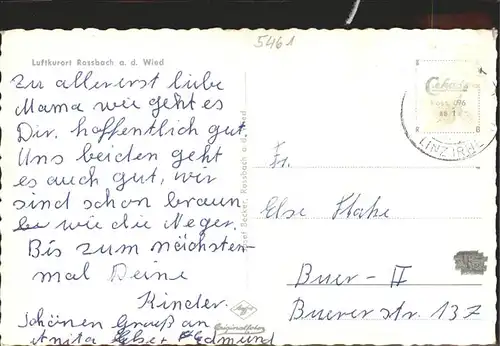 5461
Luftkurort Rossbach a. d. Wied
zu allererst liebe
Mama wie geht es
Dir. hoffentlich gut.
Uns beiden geht
es auch gut, wir
sind schon braun
wie die Neger.
Bis zum nächsten-
mal Deine
Kinder.
Schönen Gruß an
Anita Edmund
Josef Becker, Rossbach a. d. Wied
Cekade
LINZ (RH)
Fr.
Else Stake
Buer - II
Buererstr. 137
Agfa
Originalfoto